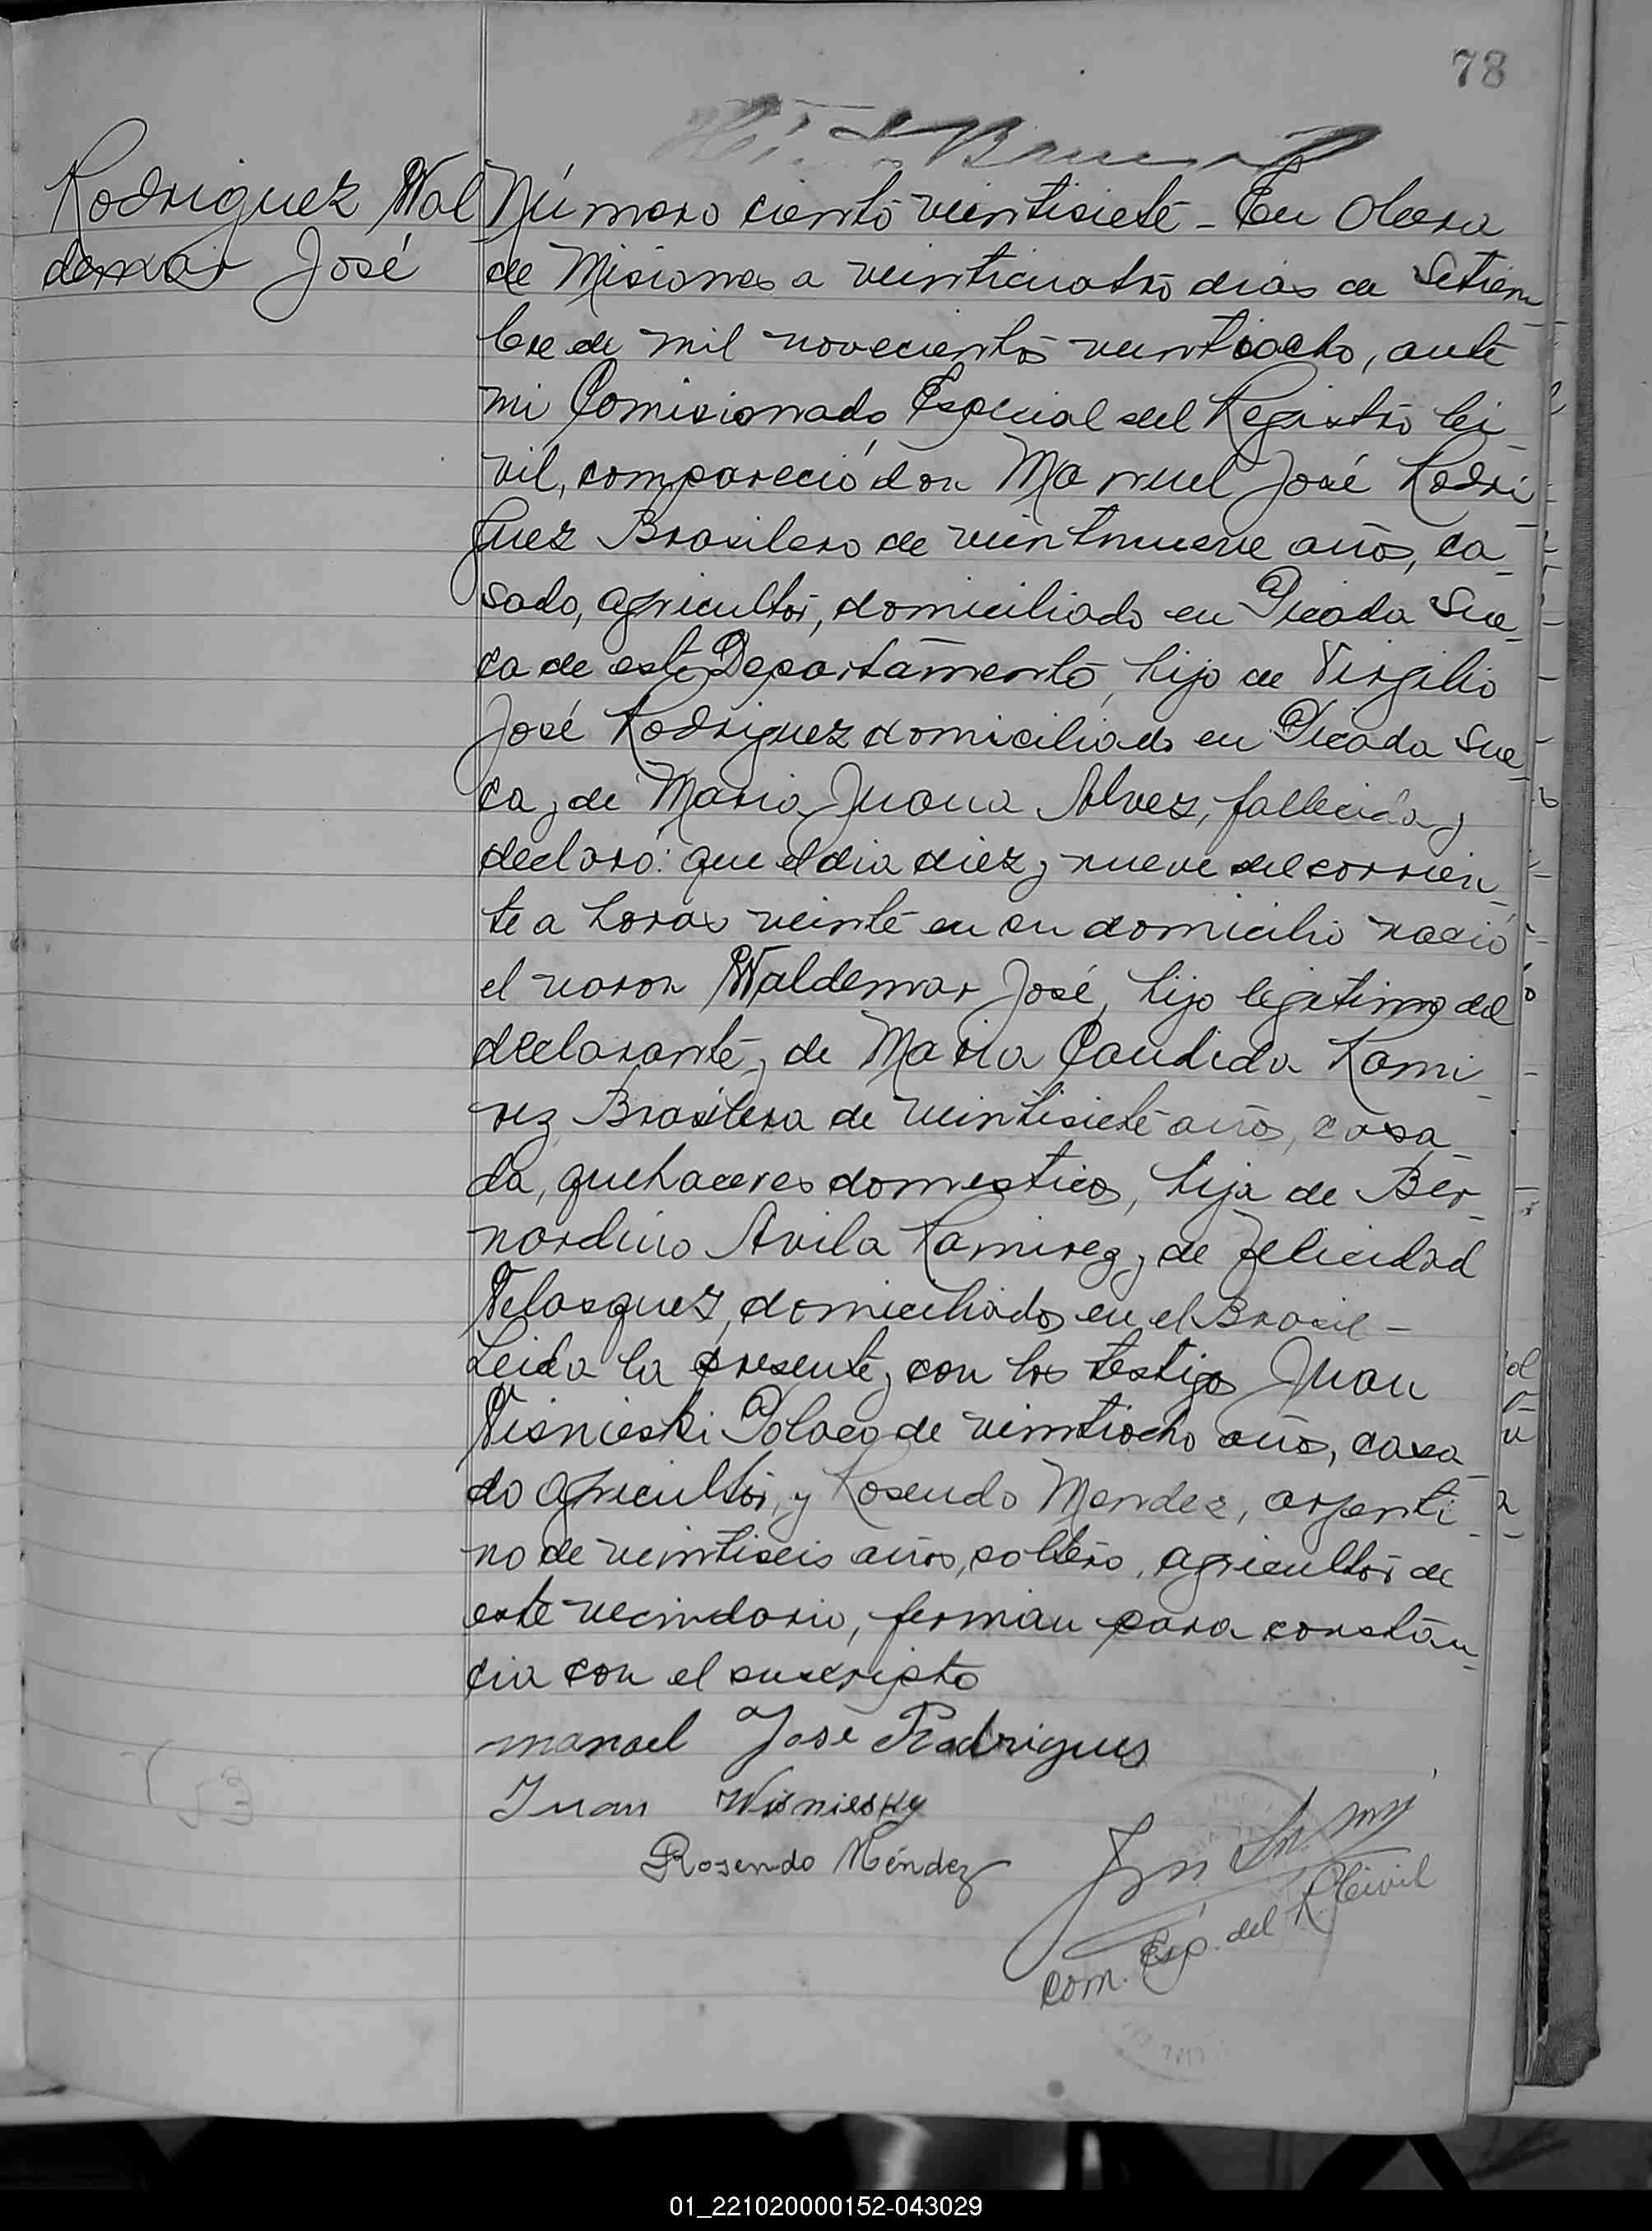 78
Rodriguez Wal
demar José
Número ciento veintisiete - En Obera
de Misiones a veinticuatro dias de Setiem
bre de mil novecientos veintiocho, ante
mi Comisionado Especial del Registro Ci
vil, compareció don Manuel José Rodri
guez Brasilero de veintinueve años, ca-
sado, agricultor, domiciliado en Picada Sue-
ca de este Departamento, hijo de Virgilio
José Rodriguez domiciliado en Picada Sue-
ca y de Maria Juana Alvez, fallecida y
declaró: que el dia diez y nueve del corrien-
te a horas veinte en su domicilio nació
el varon Waldemar José, hijo legitimo del
declarante y de Maria Candida Rami-
rez, Brasilera de veintisiete años, casa-
da, quehaceres domesticos, hija de Ber-
nardino Avila Ramirez y de Felicidad
Velasquez, domiciliados en el Brasil -
Leida la presente y con los testigos Juan
Visnieski Polaco de veintiocho años, casa-
do agricultor, y Rosendo Mendez, argenti-
no de veintiseis años, soltero, agricultor de
este vecindario, firman para constan-
cia con el suscripto
manoel José Rodrigues
Juan Wisniesky
Rosendo Méndez
Com. Esp. del R. Civil
53
01_221020000152-043029